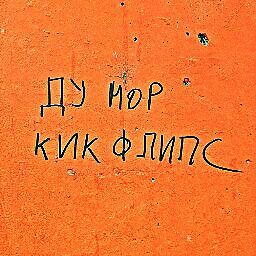 ДУ МОР
КИК ФЛИПС